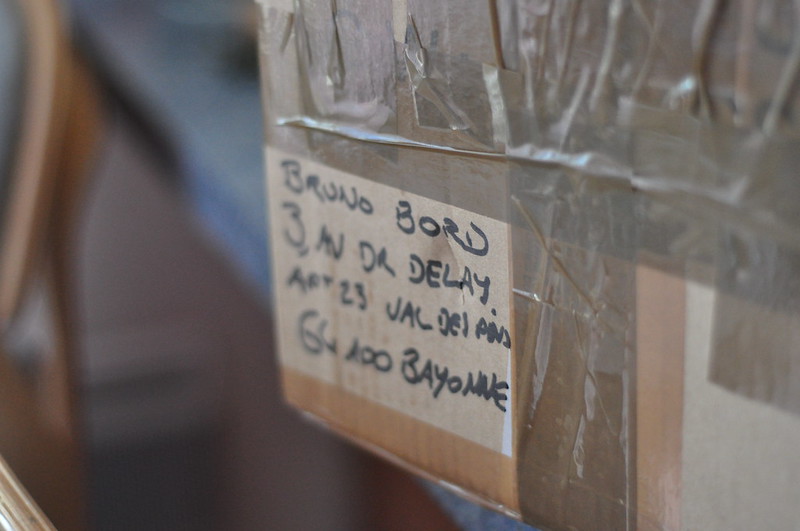 BRUNO BORD
3, AV DR DELAY.
APT 23 VAL DES PINS
64 100 BAYONNE